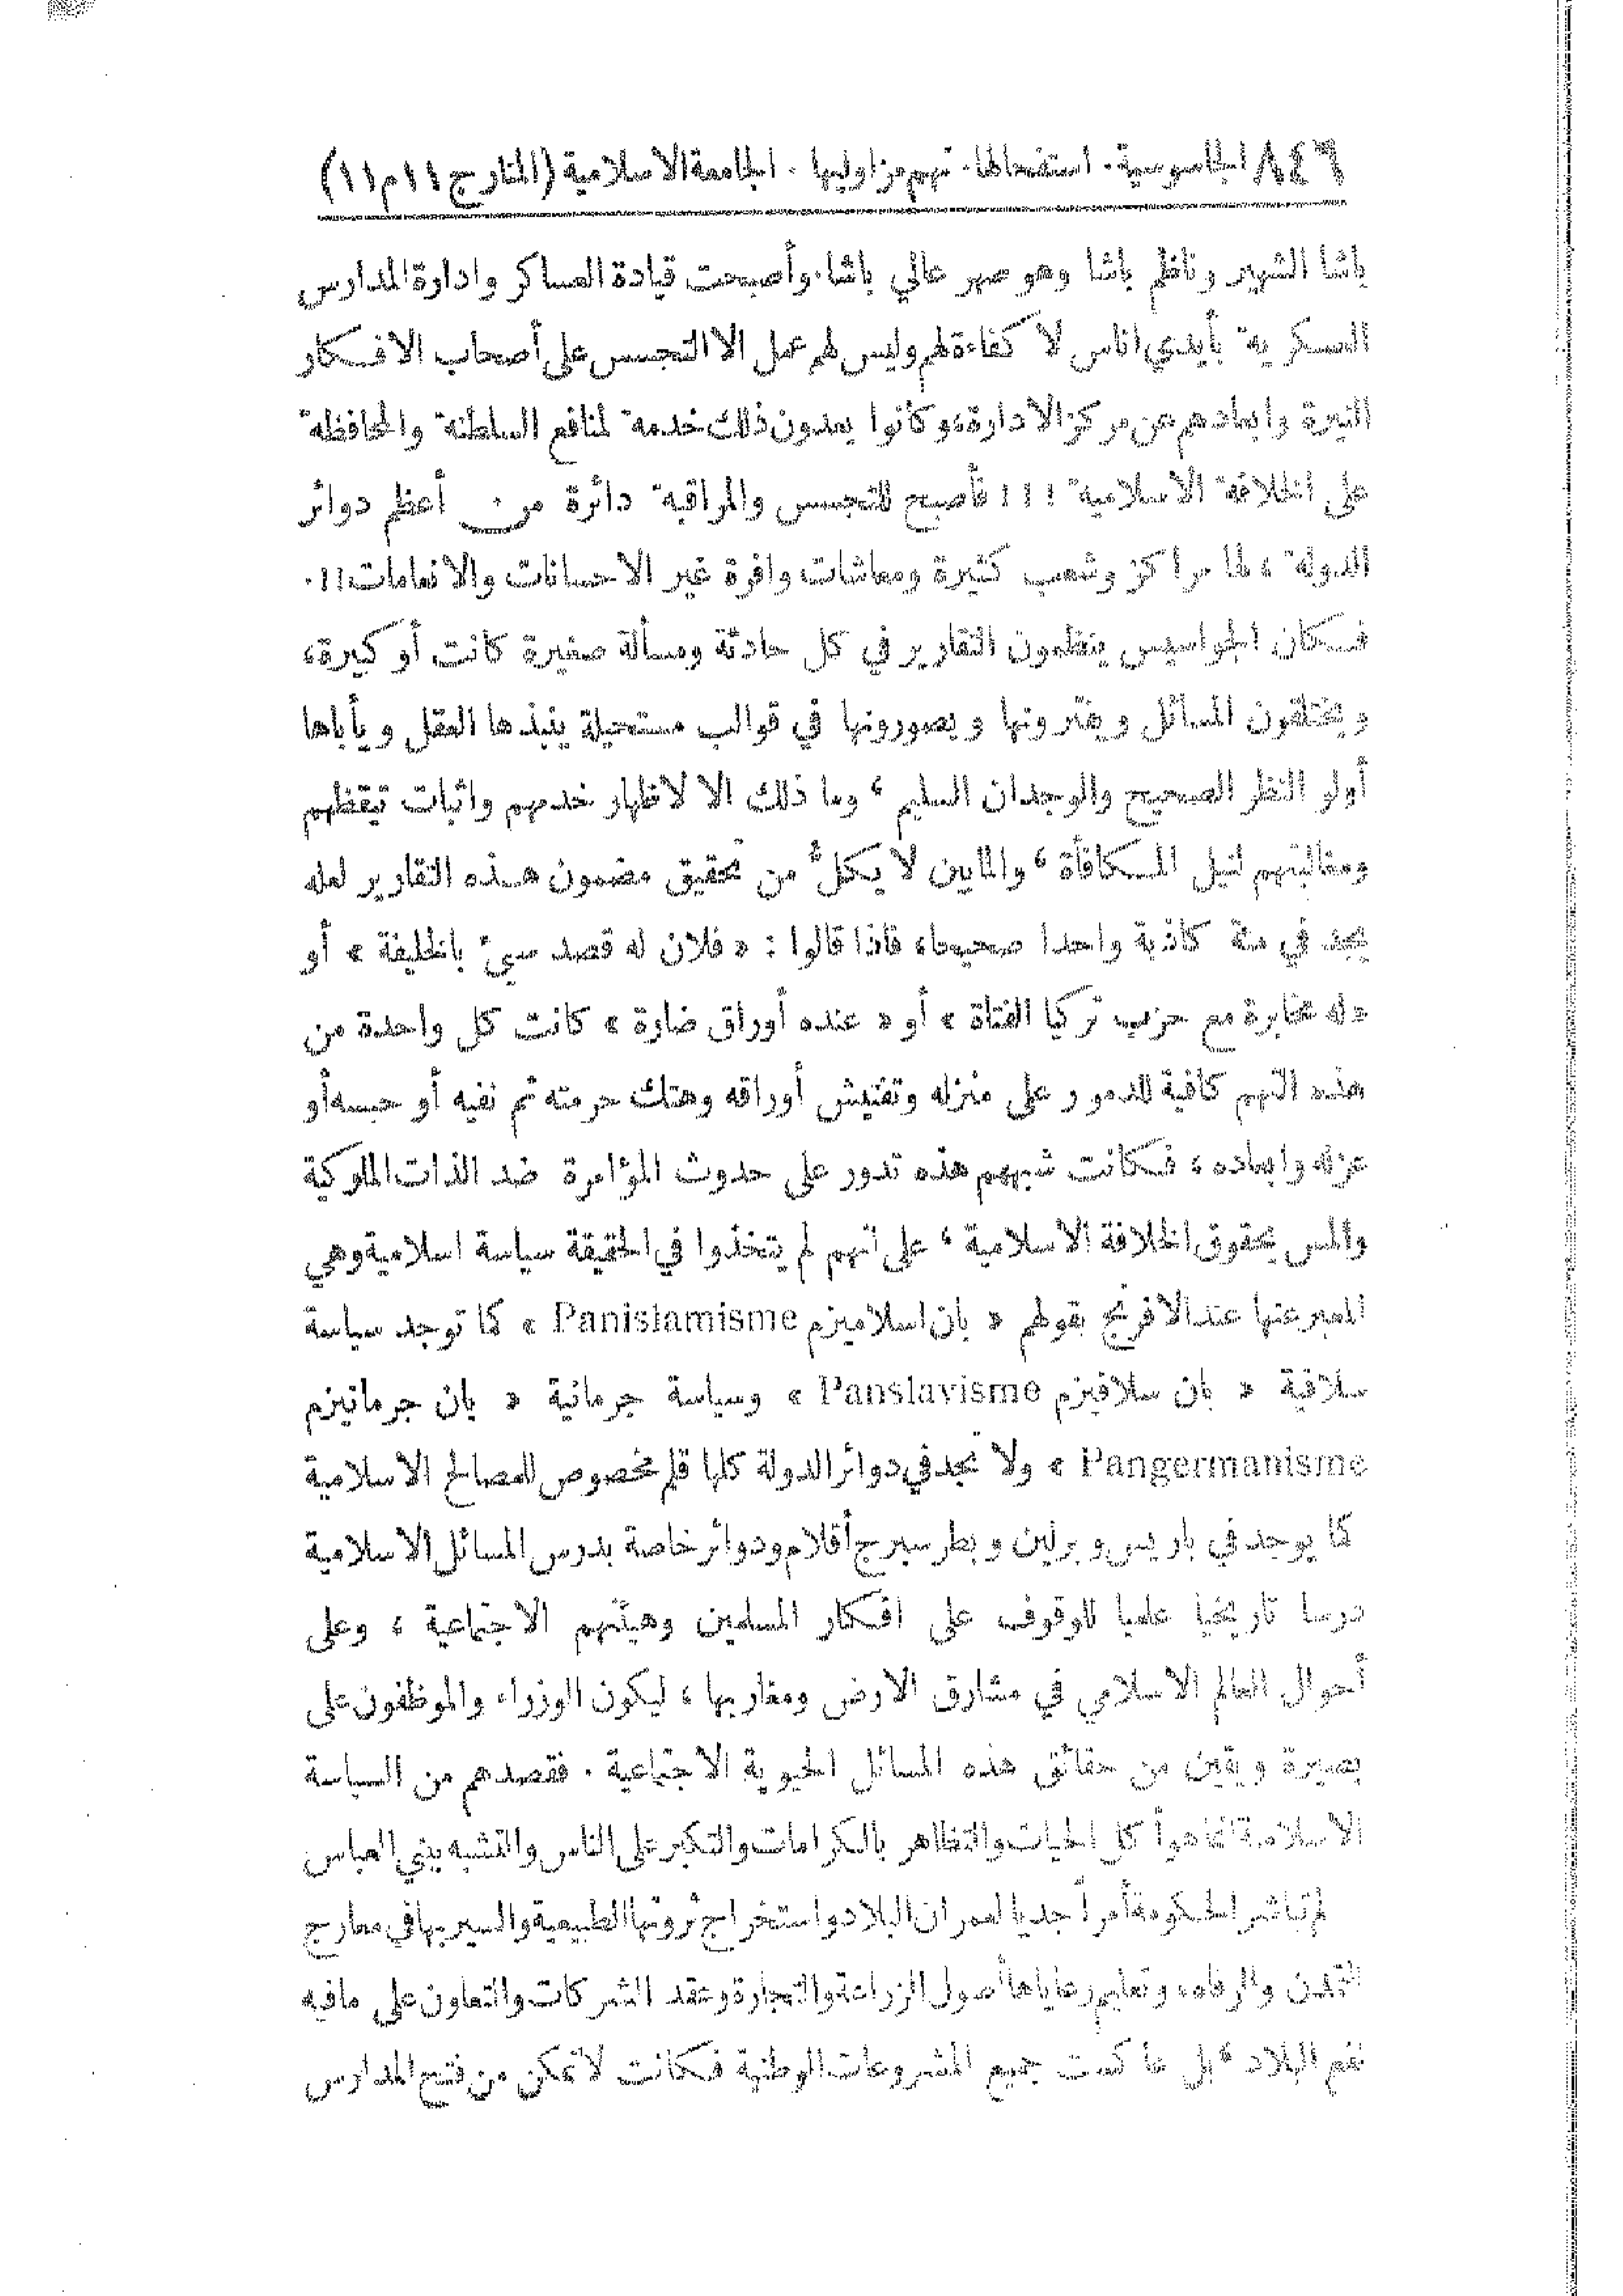 ٨٤٦ الجاسوسية . استفحالها . تهم مزاوليها . الجامعة الاسلامية (المنار ج ١١ م ١١)
باشا الشهير وناظم باشا وهو صهر عالي باشا . وأصبحت قيادة العساكر وادارة المدارس
العسكرية بأيدي اناس لا كفاءة لهم وليس لهم عمل الا التجسس على أصحاب الافكار
النيرة وابعادهم عن مركز الادارة، وكانوا يعدون ذلك خدمة لمنافع السلطنة والمحافظة
على الخلافة الاسلامية !!! فأصبح للتجسس والمراقبة دائرة من أعظم دوائر
الدولة ، لها مراكز وشعب كثيرة ومعاشات وافرة غير الاحسانات والانعامات!! .
فكان الجواسيس ينظمون التقارير في كل حادثة ومسألة صغيرة كانت أو كبيرة،
ويختلقون المسائل ويفترونها ويصورونها في قوالب مستحيلة ينبذها العقل ويأباها
أولو النظر الصحيح والوجدان السليم ، وما ذلك الا لاظهار خدمهم واثبات تيقظهم
ومغالبتهم لنيل المكافأة ، والمابين لا يكلّ من تحقيق مضمون هذه التقارير لعله
يجد في مئة كاذبة واحدا صحيحا، فاذا قالوا : « فلان له قصد سيئ بالخليفة » أو
«له مخابرة مع حزب تركيا الفتاة » أو « عنده أوراق ضارة » كانت كل واحدة من
هذه التهم كافية للدمور على منزله وتفتيش أوراقه وهتك حرمته ثم نفيه أو حبسه أو
عزله وابعاده ، فكانت شبههم هذه تدور على حدوث المؤامرة ضد الذات الملوكية
والمس بحقوق الخلافة الاسلامية ، على انهم لم يتخذوا في الحقيقة سياسة اسلامية وهي
المعبر عنها عند الافرنج بقولهم « بان اسلاميزم Panislamisme » كما توجد سياسة
سلافية « بان سلافيزم Panslavisme » وسياسة جرمانية « بان جرمانيزم
Pangermanisme » ولا تجد في دوائر الدولة كلها قلم مخصوص للمصالح الاسلامية
كما يوجد في باريس وبرلين وبطرسبرج أقلام ودوائر خاصة بدرس المسائل الاسلامية
درسا تاريخيا علميا للوقوف على افكار المسلمين وهيئتهم الاجتماعية ، وعلى
أحوال العالم الاسلامي في مشارق الارض ومغاربها ، ليكون الوزراء والموظفون على
بصيرة ويقين من حقائق هذه المسائل الحيوية الاجتماعية . فقصدهم من السياسة
الاسلامية انما هو أكل الحيات والتظاهر بالكرامات والتكبر على الناس والتشبه ببني العباس
لم تباشر الحكومة أمراً جديا لعمران البلاد واستخراج ثروتها الطبيعية والسير بها في معارج
التمدن والرفاه، وتعليم رعاياها أصول الزراعة والتجارة وعقد الشركات والتعاون على مافيه
نفع البلاد ، بل عاكست جميع المشروعات الوطنية فكانت لا تمكن من فتح المدارس